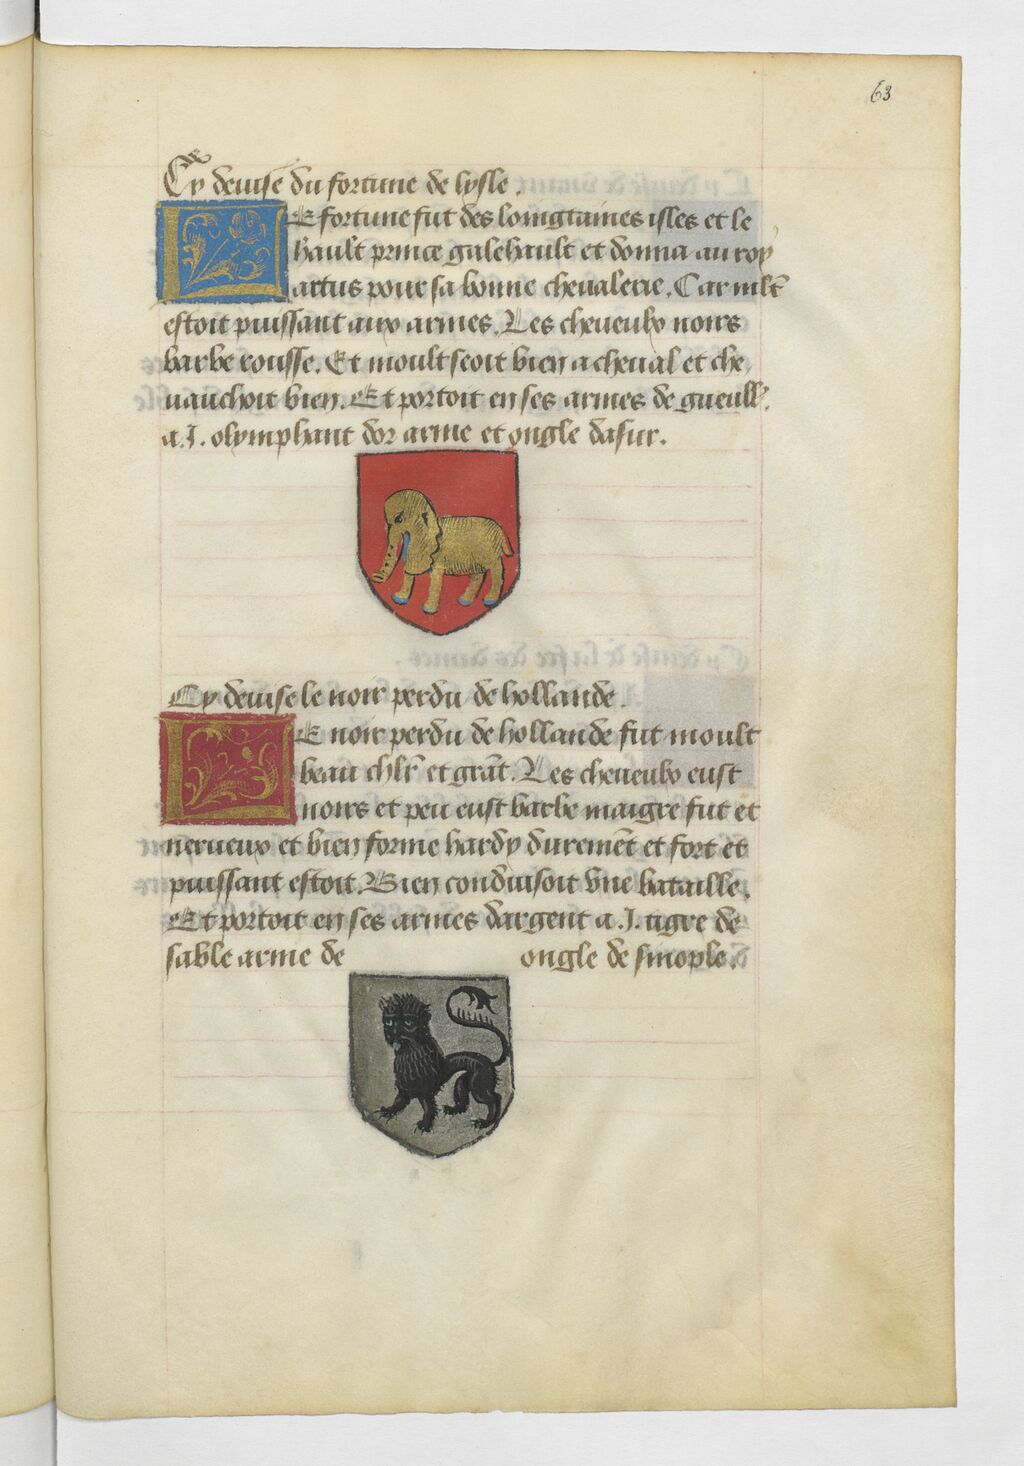 63
Cy deuise du fortune de lysle.
LE fortune fut des loingtaines isles et le
hault prince galehault et donna au roy
artus pour sa bonne cheualerie. Car mlt̄
estoit puissant aux armes. Les cheueulx noirs
barbe rousse. Et moult seoit bien a cheual et che
uauchoit bien. Et portoit en ses armes de gueull'.
a .J. olymphant dor arme et ongle dasur.
Cy deuise le noir perdu de hollande.
LE noir perdu de hollande fut moult
beau chlr̄ et grāt. Les cheueulx eust
noirs et peu eust barbe maigre fut et
nerueux et bien forme hardy duremēt et fort et
puissant estoit. Bien conduisoit vne bataille.
Et portoit en ses armes dargent a .J. tigre de
sable arme de ongle de sinople.